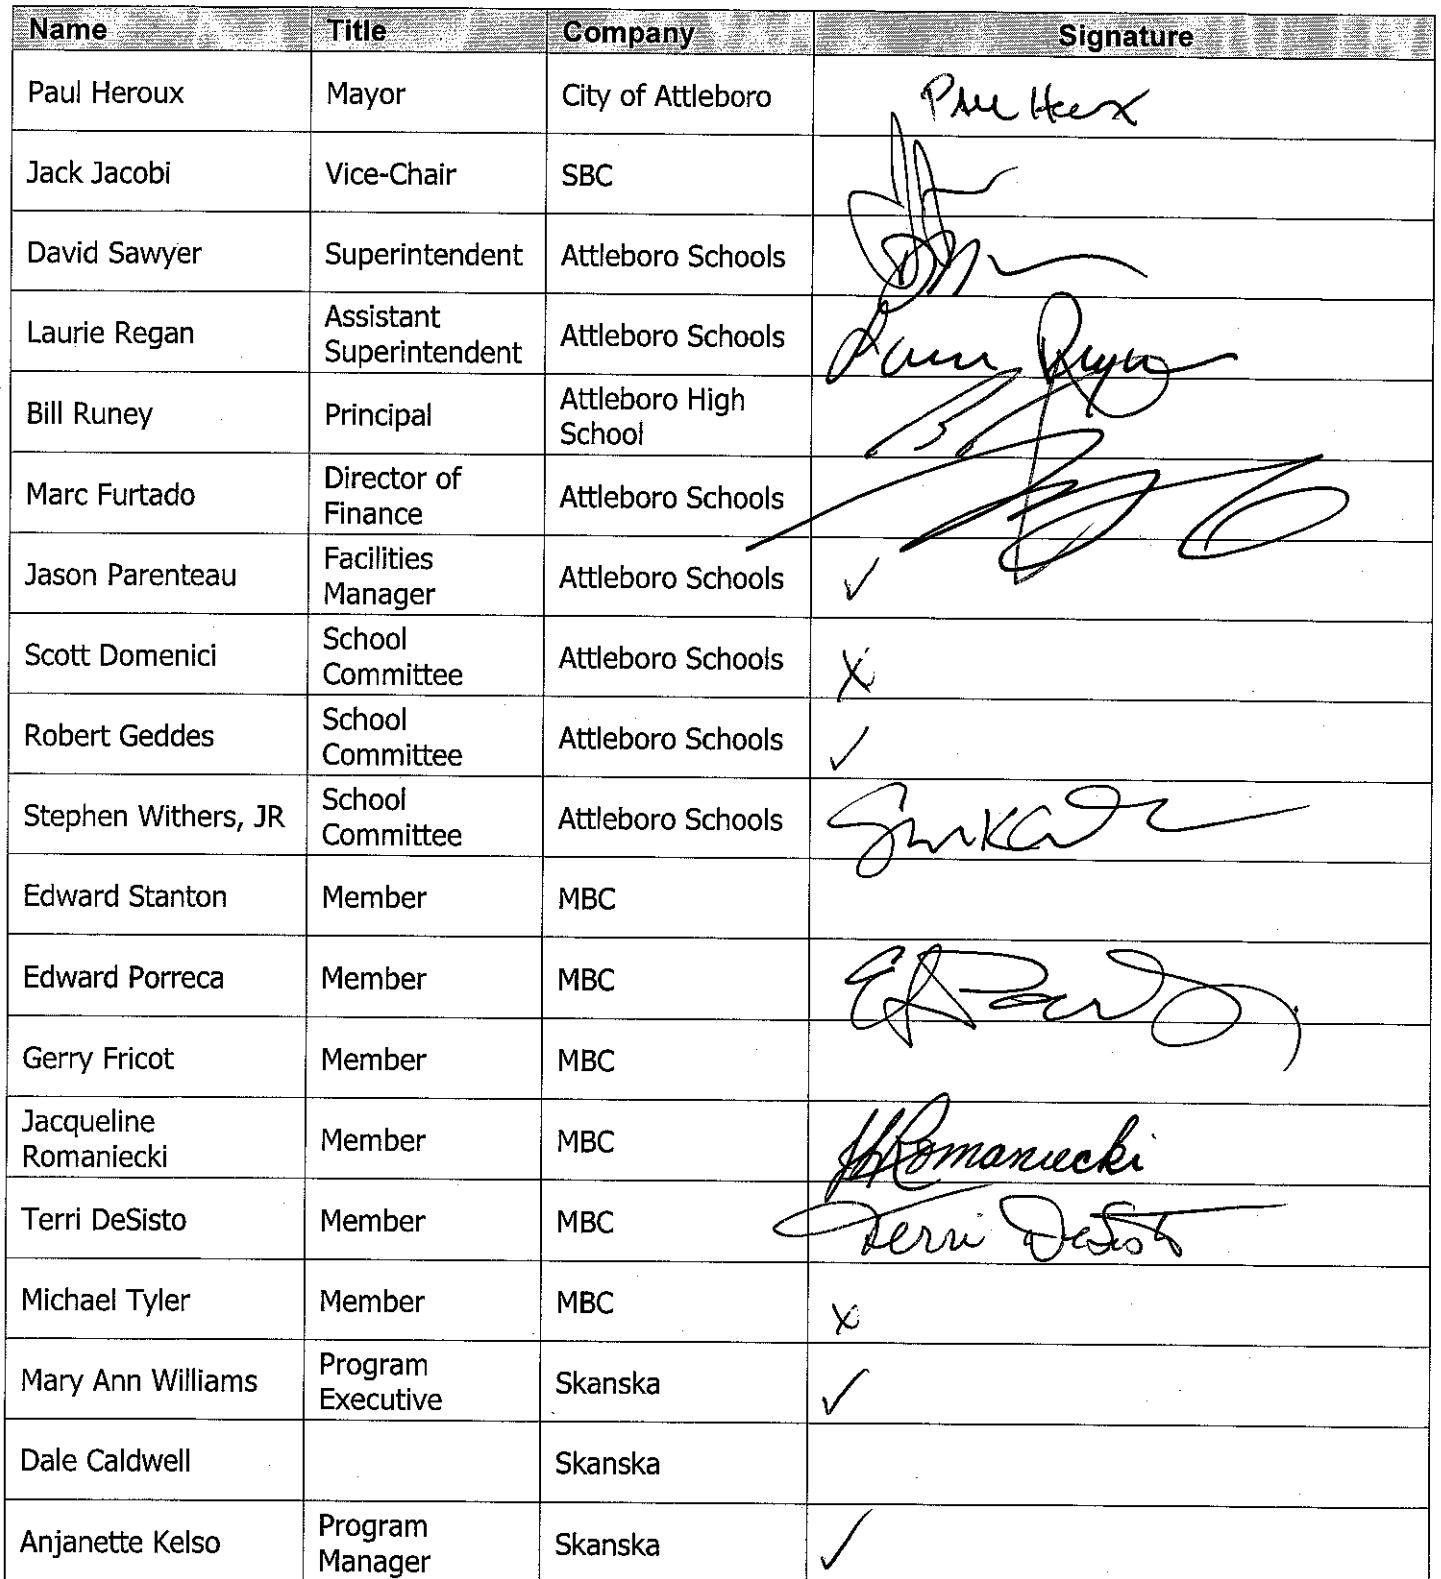 Name Title Company Signature
Paul Heroux Mayor City of Attleboro Paul Heroux
Jack Jacobi Vice-Chair SBC
David Sawyer Superintendent Attleboro Schools
Laurie Regan Assistant Superintendent Attleboro Schools Laurie Regan
Bill Runey Principal Attleboro High School
Marc Furtado Director of Finance Attleboro Schools
Jason Parenteau Facilities Manager Attleboro Schools ✓
Scott Domenici School Committee Attleboro Schools X
Robert Geddes School Committee Attleboro Schools ✓
Stephen Withers, JR School Committee Attleboro Schools
Edward Stanton Member MBC
Edward Porreca Member MBC
Gerry Fricot Member MBC
Jacqueline Romaniecki Member MBC JRomaniecki
Terri DeSisto Member MBC Terri DeSisto
Michael Tyler Member MBC X
Mary Ann Williams Program Executive Skanska ✓
Dale Caldwell Skanska
Anjanette Kelso Program Manager Skanska ✓